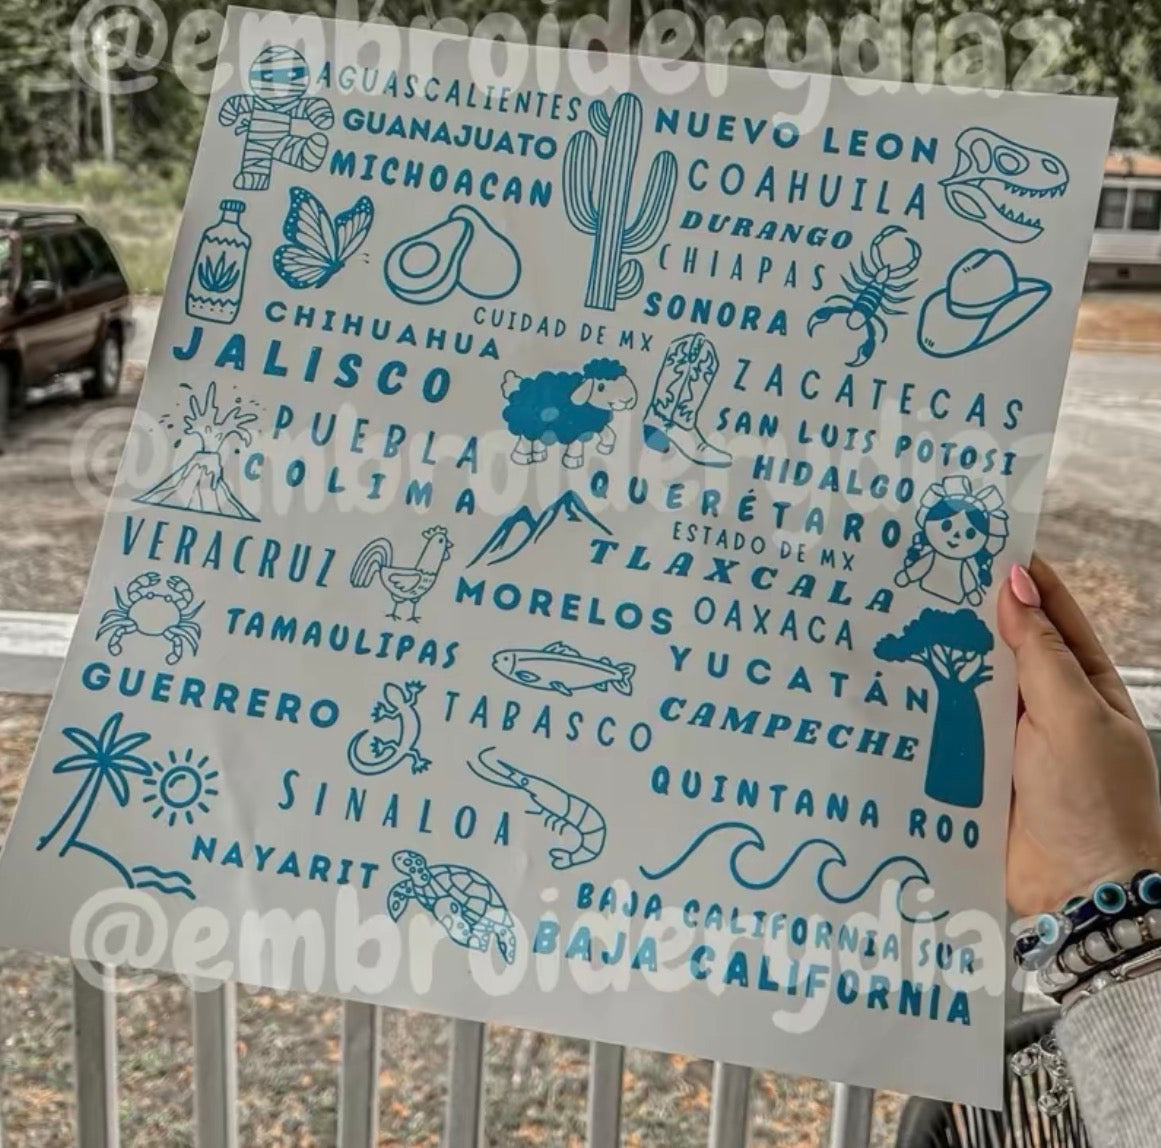 @embroiderydiaz
AGUASCALIENTES
GUANAJUATO
MICHOACAN
NUEVO LEON
COAHUILA
DURANGO
CHIAPAS
SONORA
CHIHUAHUA
CUIDAD DE MX
JALISCO
ZACATECAS
SAN LUIS POTOSI
HIDALGO
PUEBLA
COLIMA
@embroiderydiaz
QUERÉTARO
ESTADO DE MX
TLAXCALA
VERACRUZ
MORELOS
OAXACA
TAMAULIPAS
YUCATÁN
GUERRERO
TABASCO
CAMPECHE
QUINTANA ROO
SINALOA
NAYARIT
BAJA CALIFORNIA SUR
BAJA CALIFORNIA
@embroiderydiaz